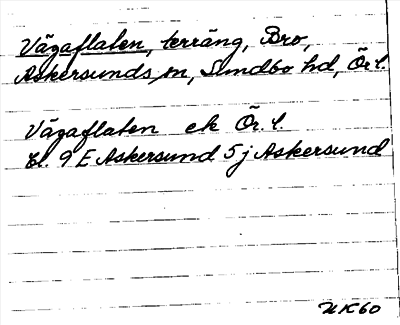 Vägaflaten, terräng, Bro,
Askersunds, sn, Sundbo hd, Ör. l.
Vägaflaten ek Ör. l.
bl. 9 E Askersund 5 j Askersund
UK60